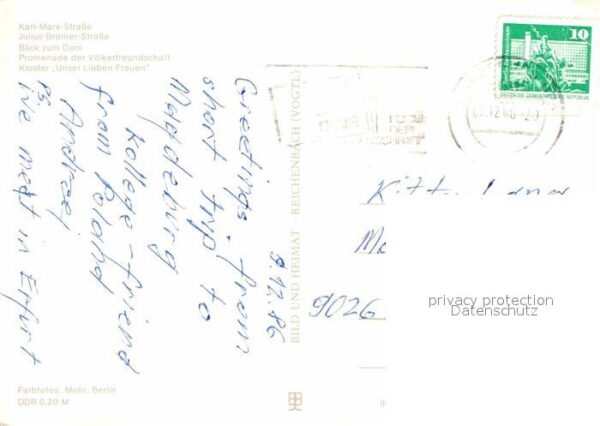 Karl-Marx-Straße
Julius-Bremer-Straße
Blick zum Dom
Promenade der Völkerfreundschaft
Kloster „Unser Lieben Frauen"
9.12.86
Greetings from
short trip to
Magdeburg
Kollege-friend
from Poland
Andrzej
PS.
We meet in Erfurt
BILD UND HEIMAT · REICHENBACH (VOGTL)
10
DEUTSCHE DEMOKRATISCHE REPUBLIK
9026
privacy protection
Datenschutz
Farbfotos: Mohr, Berlin
DDR 0,20 M